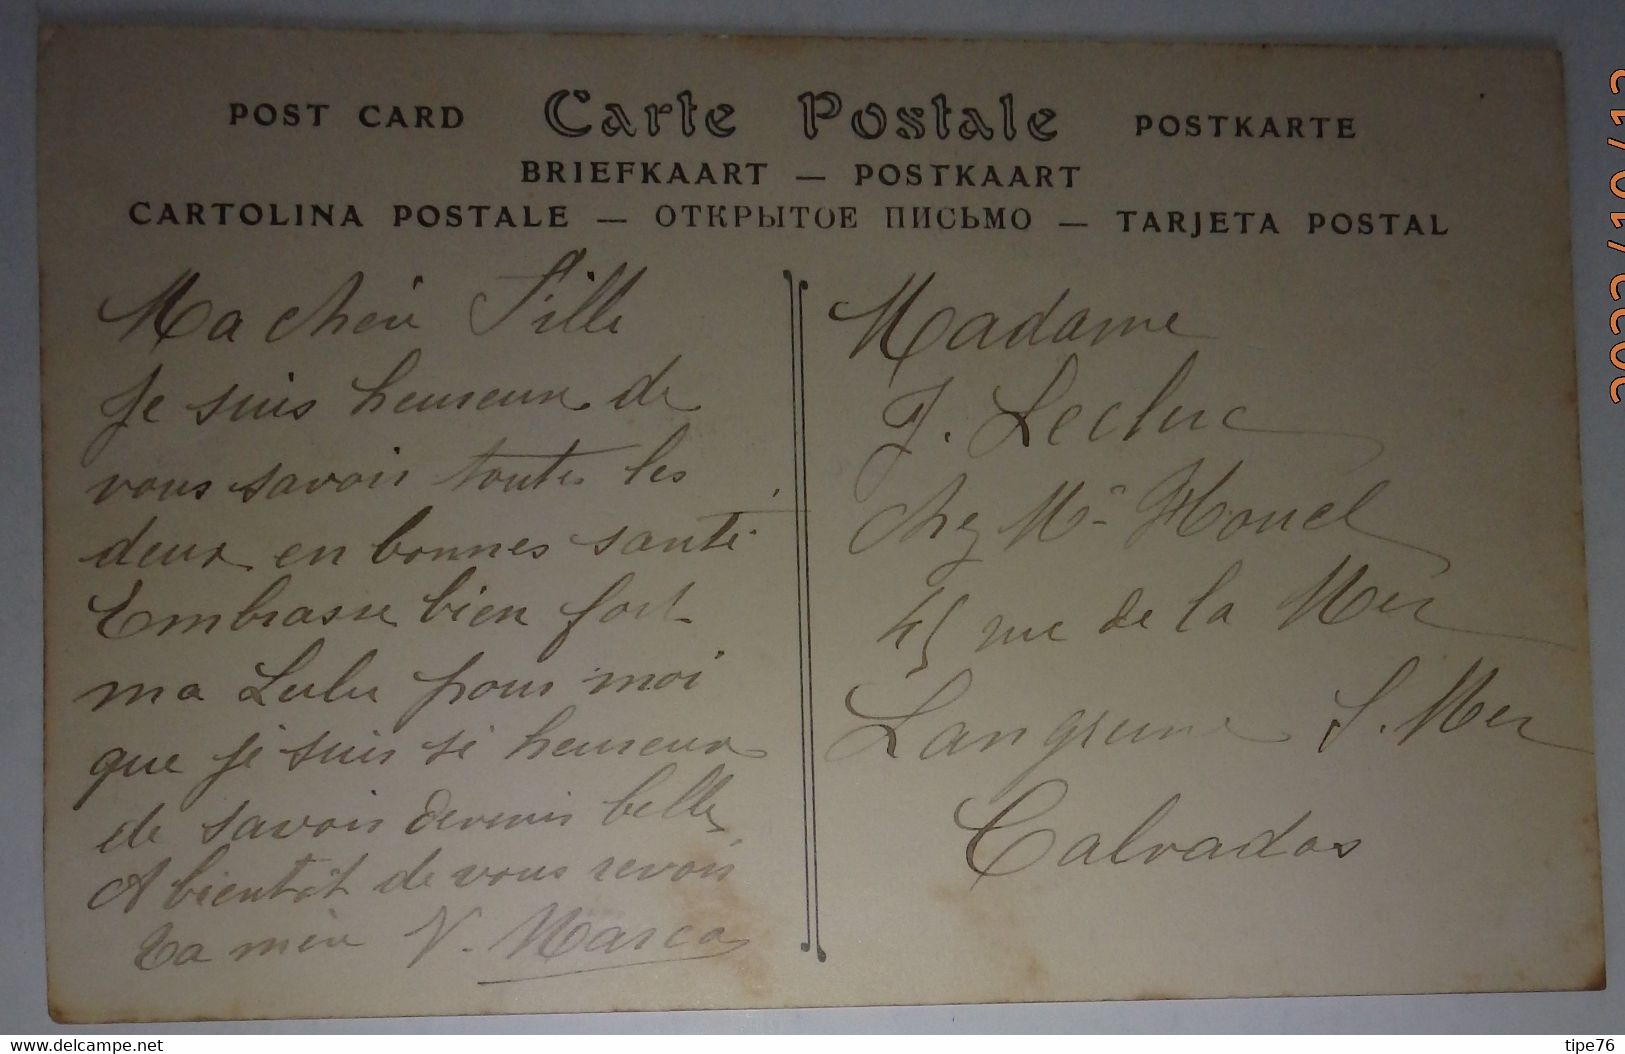 POST CARD Carte Postale POSTKARTE
BRIEFKAART — POSTKAART
CARTOLINA POSTALE — ОТКРЫТОЕ ПИСЬМО — TARJETA POSTAL
Ma chère Fille
Je suis heureux de
vous savoir toutes les
deux en bonnes santé
Embrasse bien fort
ma Lulu pour moi
que je suis si heureux
de savoir devenir belle
A bientôt de vous revoir
Ta mère V. Marcos
Madame
J. Lecluc
chez Me Houel
45 rue de la Mer
Langrune S. Mer
Calvados
2022/10/12
www.delcampe.net
tipe76